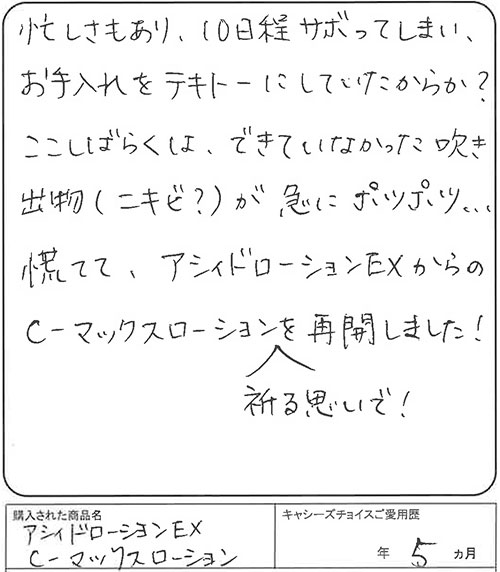 忙しさもあり、10日程サボってしまい、
お手入れをテキトーにしていたからか?
ここしばらくは、できていなかった吹き
出物(ニキビ?)が急にポツポツ...
慌てて、アシィドローションEXからの
C-マックスローションを再開しました!
祈る思いで!
購入された商品名
アシィドローションEX
C-マックスローション
キャシーズチョイスご愛用歴
年 5 カ月